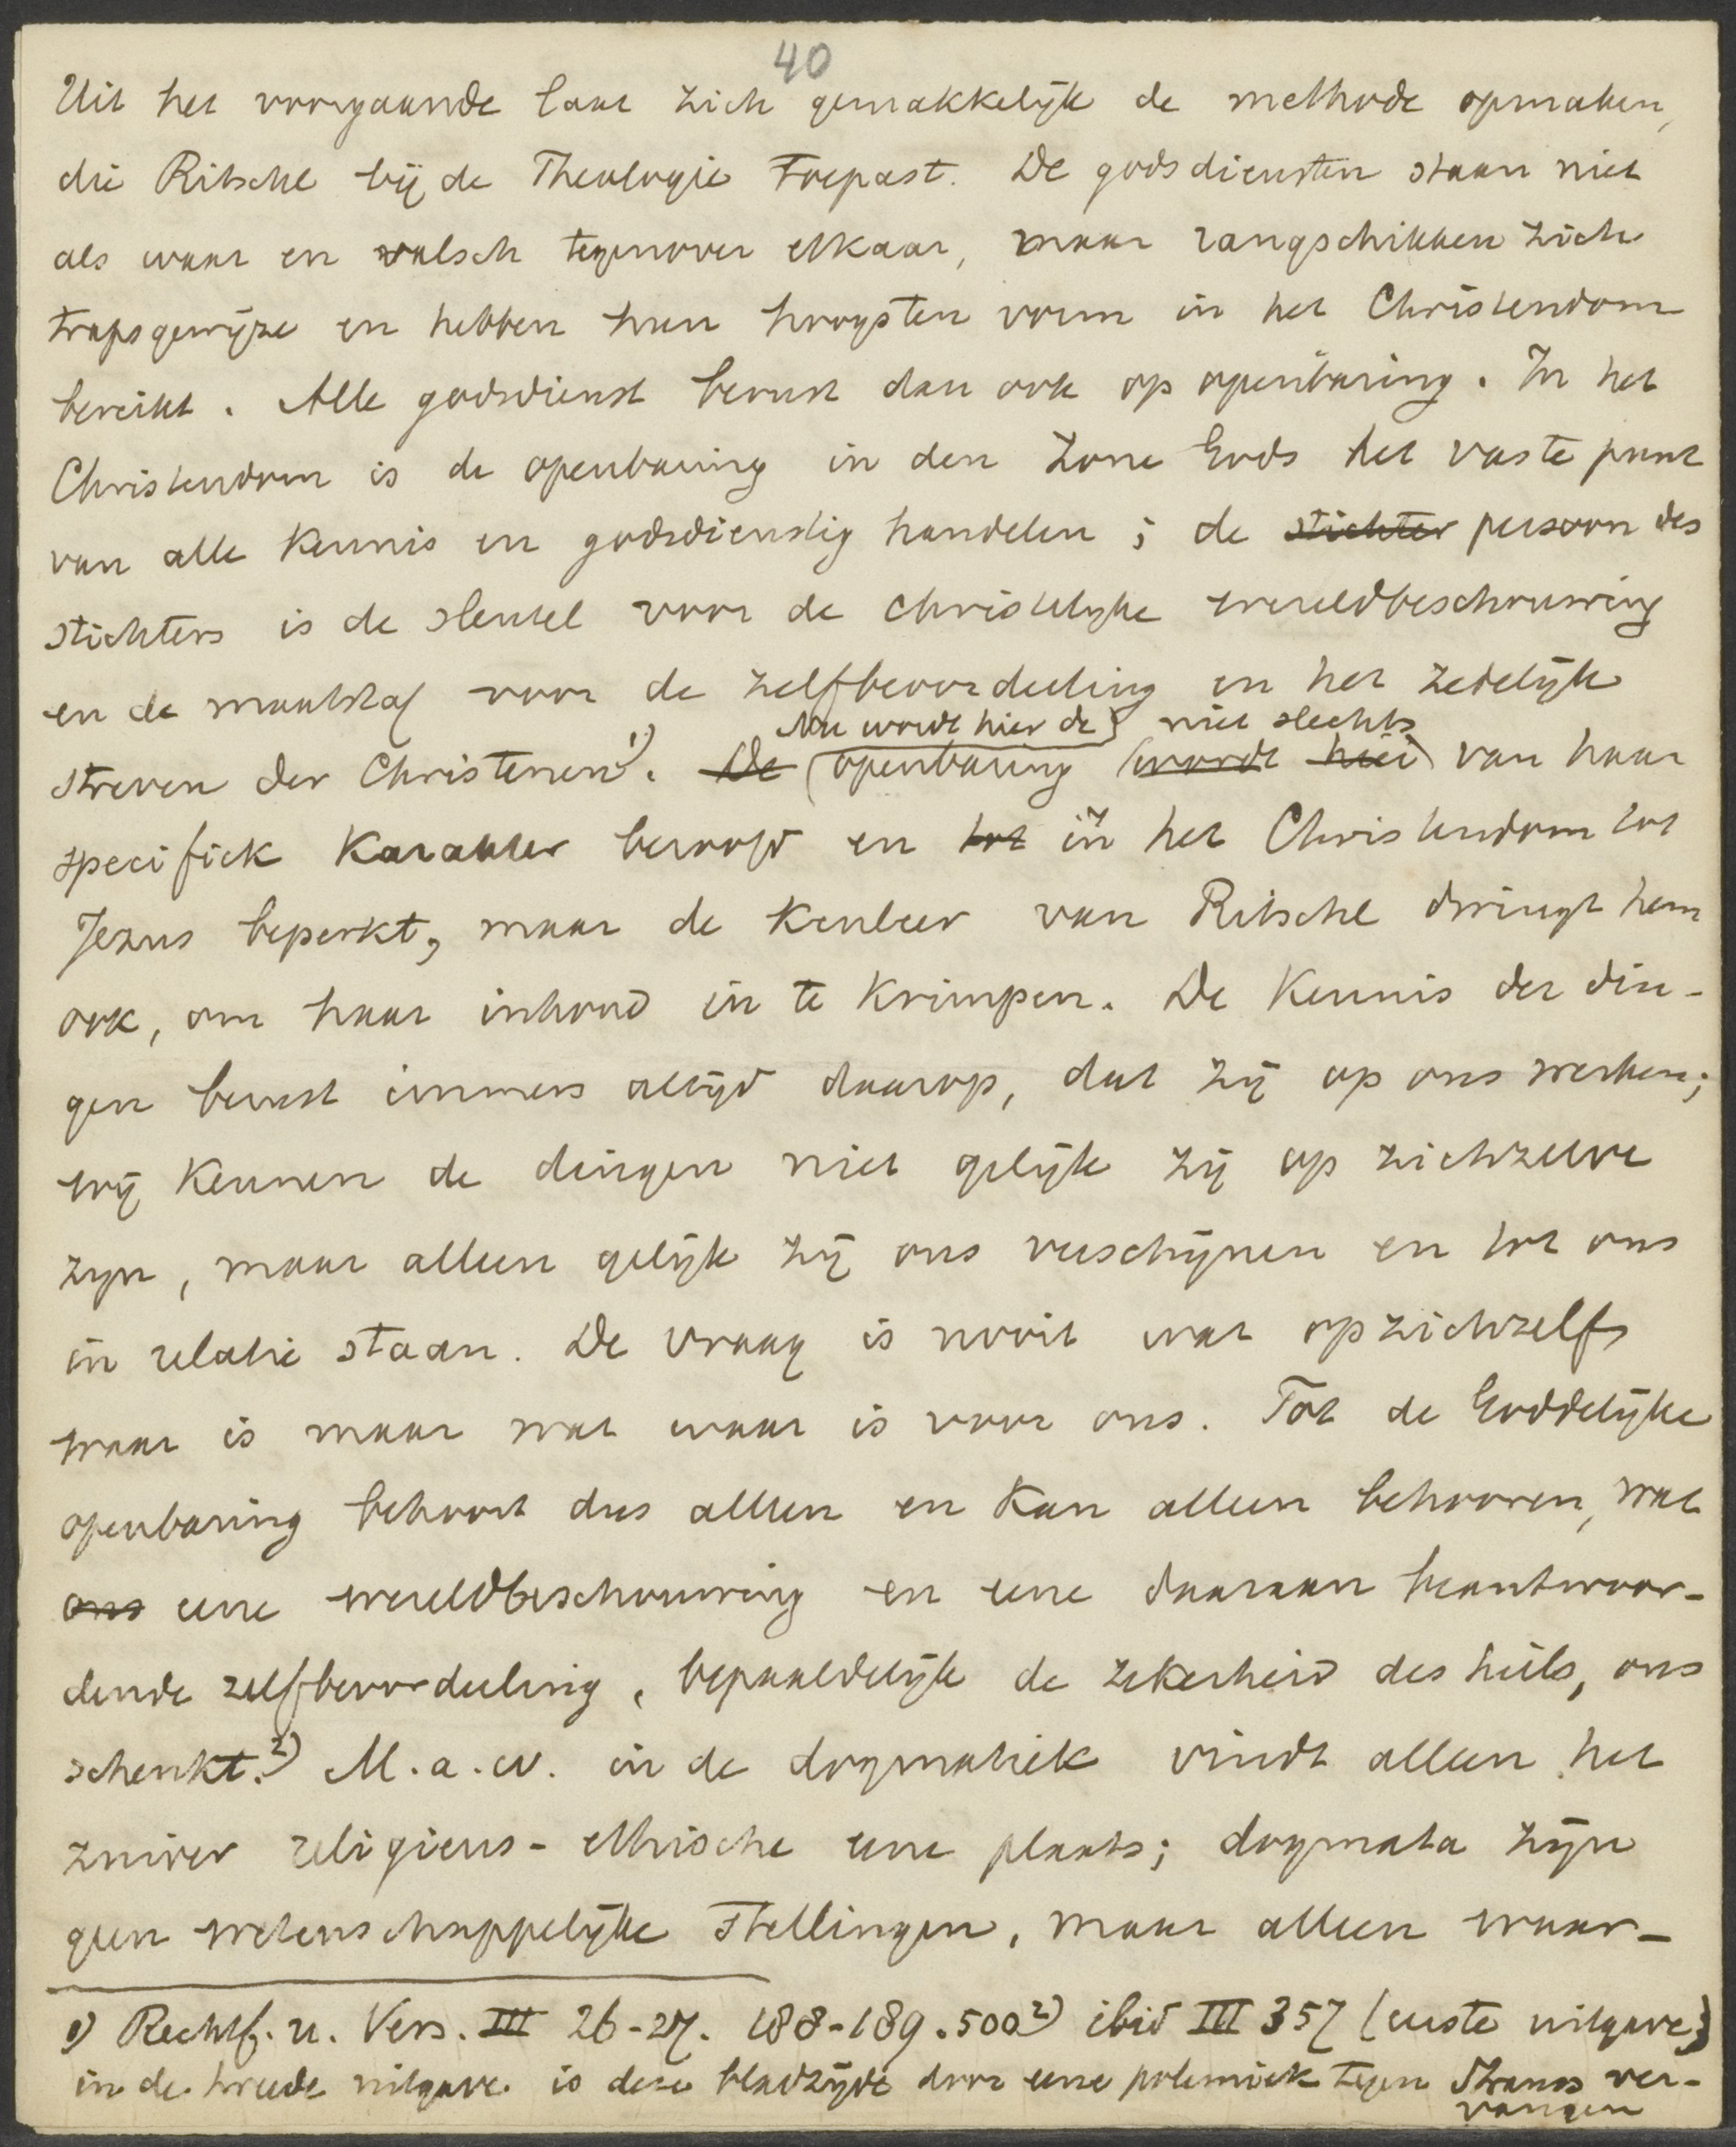 40
Uit het voorgaande laat zich gemakkelijk de methode opmaken,
die Ritschl bij de Theologie toepast. De godsdiensten staan niet
als waar en valsch tegenover elkaar, maar rangschikken zich
trapsgewijze en hebben hun hoogsten vorm in het Christendom
bereikt. Alle godsdienst berust dan ook op openbaring. In het
Christendom is de openbaring in den Zone Gods het vaste punt
van alle kennis en godsdienstig handelen; de stichter persoon des
stichters is de sleutel voor de christelijke wereldbeschouwing
en de maatstaf voor de zelfbeoordeeling en het zedelijk
Nu wordt hier de niet slechts
streven der Christenen 1). De openbaring wordt hier van haar
specifiek karakter beroofd en tot in het Christendom tot
Jezus beperkt, maar de kenleer van Ritschl dringt hem
ook, om haar inhoud in te krimpen. De kennis der din-
gen berust immers altijd daarop, dat zij op ons werken;
wij kennen de dingen niet gelijk zij op zichzelve
zijn, maar alleen gelijk zij ons verschijnen en tot ons
in relatie staan. De vraag is nooit wat op zichzelf
waar is maar wat waar is voor ons. Tot de Goddelijke
openbaring behoort dus alleen en kan alleen behooren, wat
ons eene wereldbeschouwing en eene daaraan beantwoor-
dende zelfbeoordeeling, bepaaldelijk de zekerheid des heils, ons
schenkt. 2) M.a.w. in de dogmatiek vindt alleen het
zuiver religieus-ethische eene plaats; dogmata zijn
geen wetenschappelijke stellingen, maar alleen waar-
1) Rechtf. u. Vers. III 26-27. 188-189. 500 2) ibid III 357 (eerste uitgave;
in de tweede uitgave is deze bladzijde door eene polemiek tegen Strauss ver-
vangen